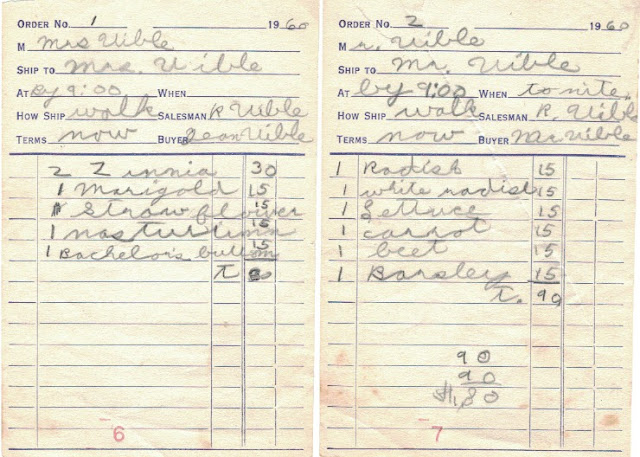 ORDER NO. 1 1960
M Mrs Vible
SHIP TO Mrs. Vible
AT By 9:00 WHEN
HOW SHIP walk SALESMAN R Vible
TERMS now BUYER Jean Vible
2 Zinnia 30
1 Marigold 15
1 Straw flower 15
1 nasturtium 15
1 Bachelor's button 15
T 90
6
ORDER NO. 2 1960
Mr. Vible
SHIP TO Mr. Vible
AT by 9:00 WHEN to nite
HOW SHIP walk SALESMAN R. Vible
TERMS now BUYER Mr Vible
1 Radish 15
1 white radish 15
1 Lettuce 15
1 carrot 15
1 beet 15
1 Parsley 15
T. 90
90
90
$1.80
7